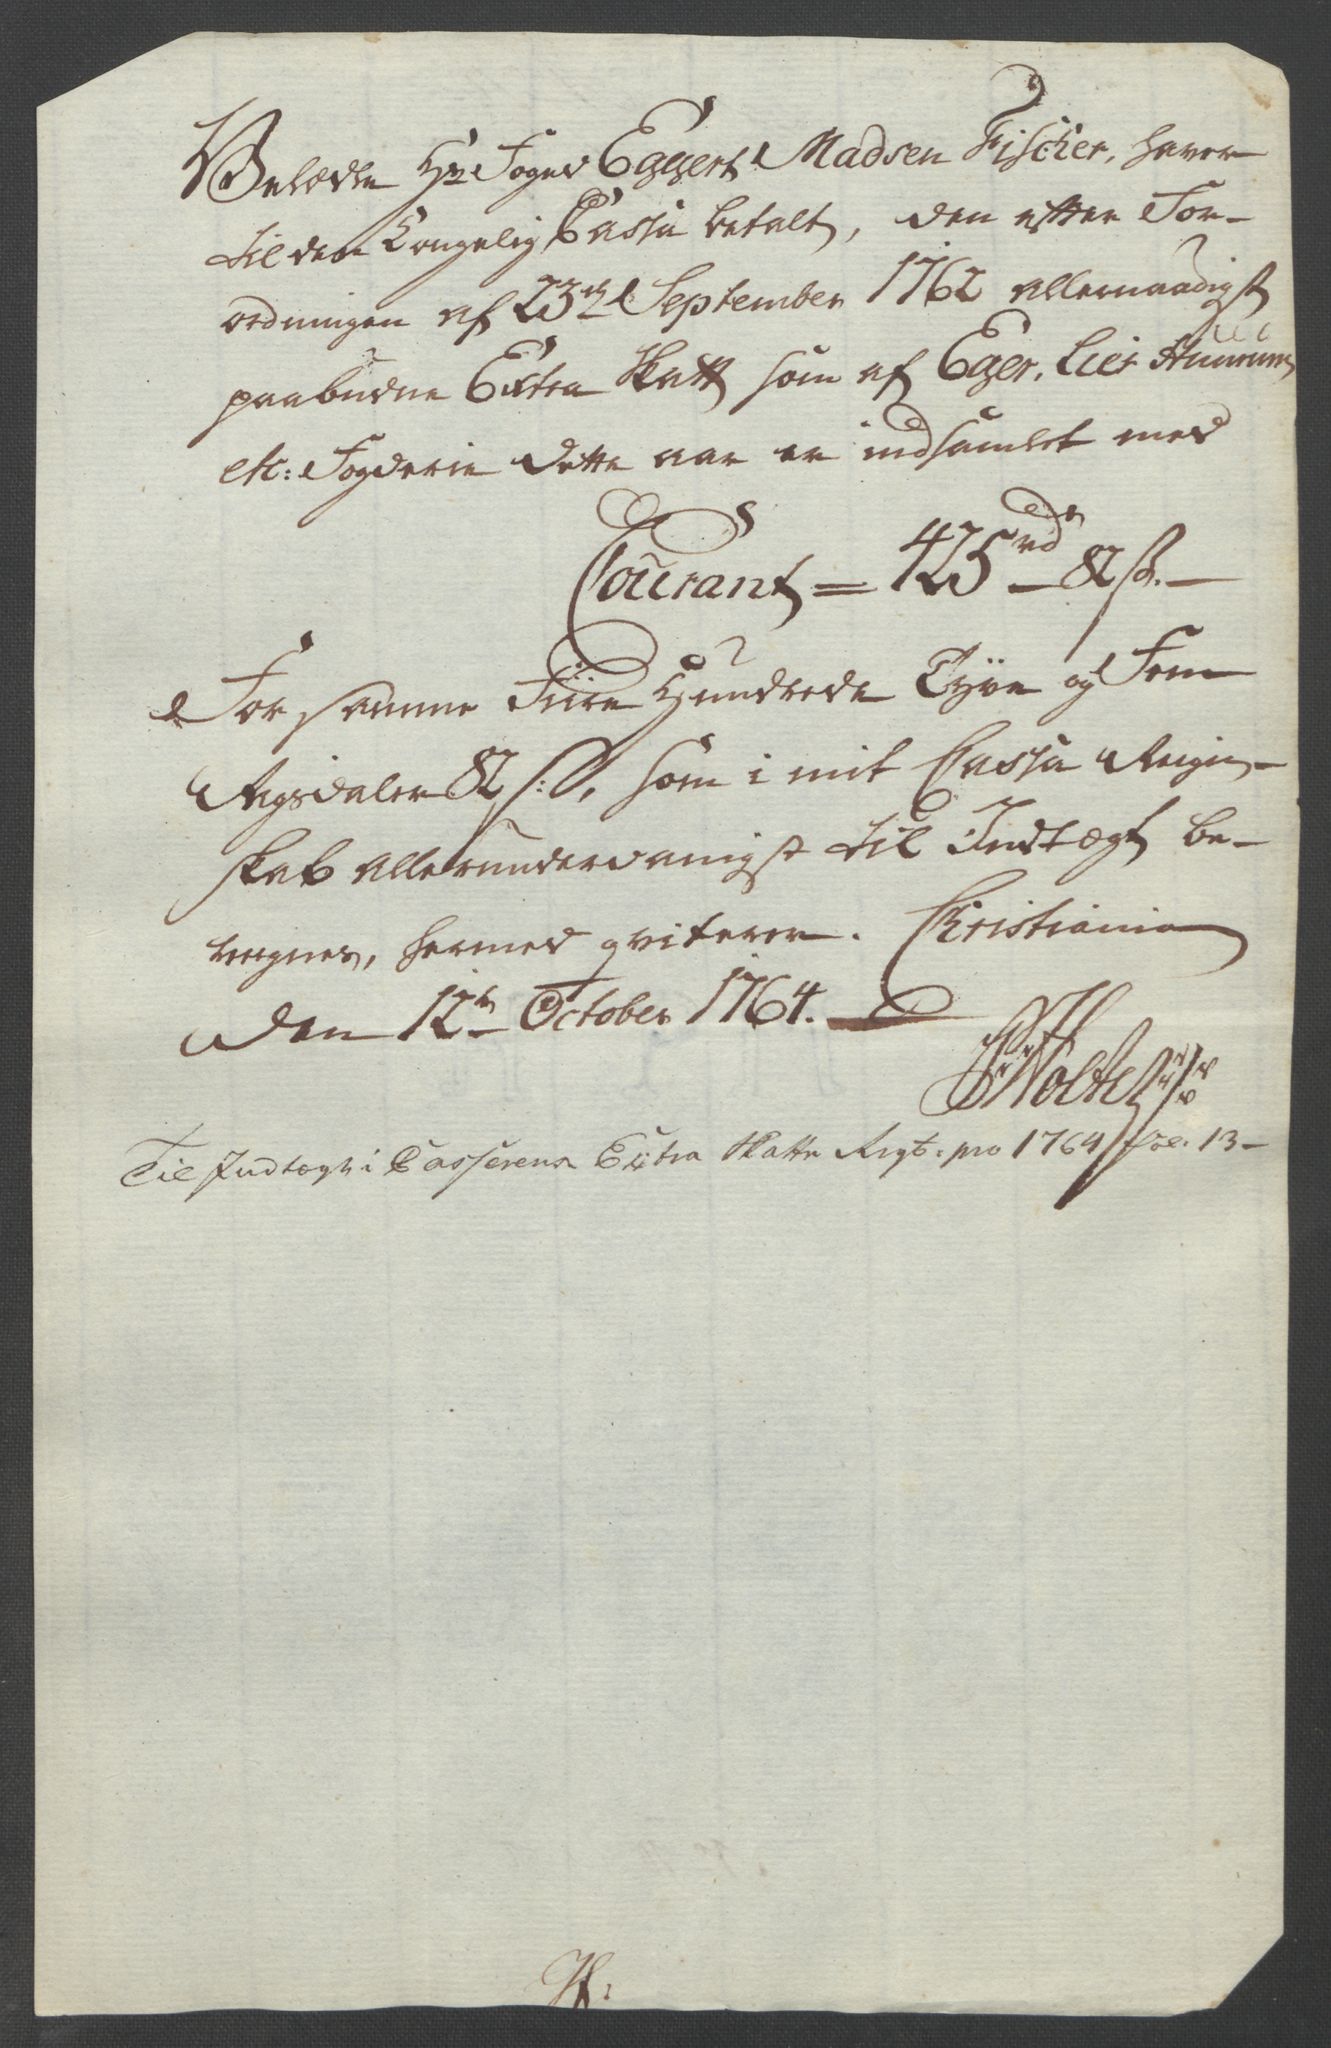 Velædle Hr Foged Eggert Madsen Fischer, haver
til den Kongelig Cassa betalt, den efter For-
ordningen af 23de September 1762 allernaadigst
paabudne Extra Skatt som af Eger, Lier
etc: Fogderie dette aar er indsamlet med
Courant = 425 rdr – 82 s. –
For samme Fiire Hundrede Tyve og Fem
Rigsdaler 82 s:, som i mit Cassa Regn-
skab allerunderdanigst til Indtægt be-
regnes, hermed qviterer. Christiania
den 12te October 1764.
Til Indtægt i Casserens Extra Skatte Regt. pro 1764 fol. 13 –